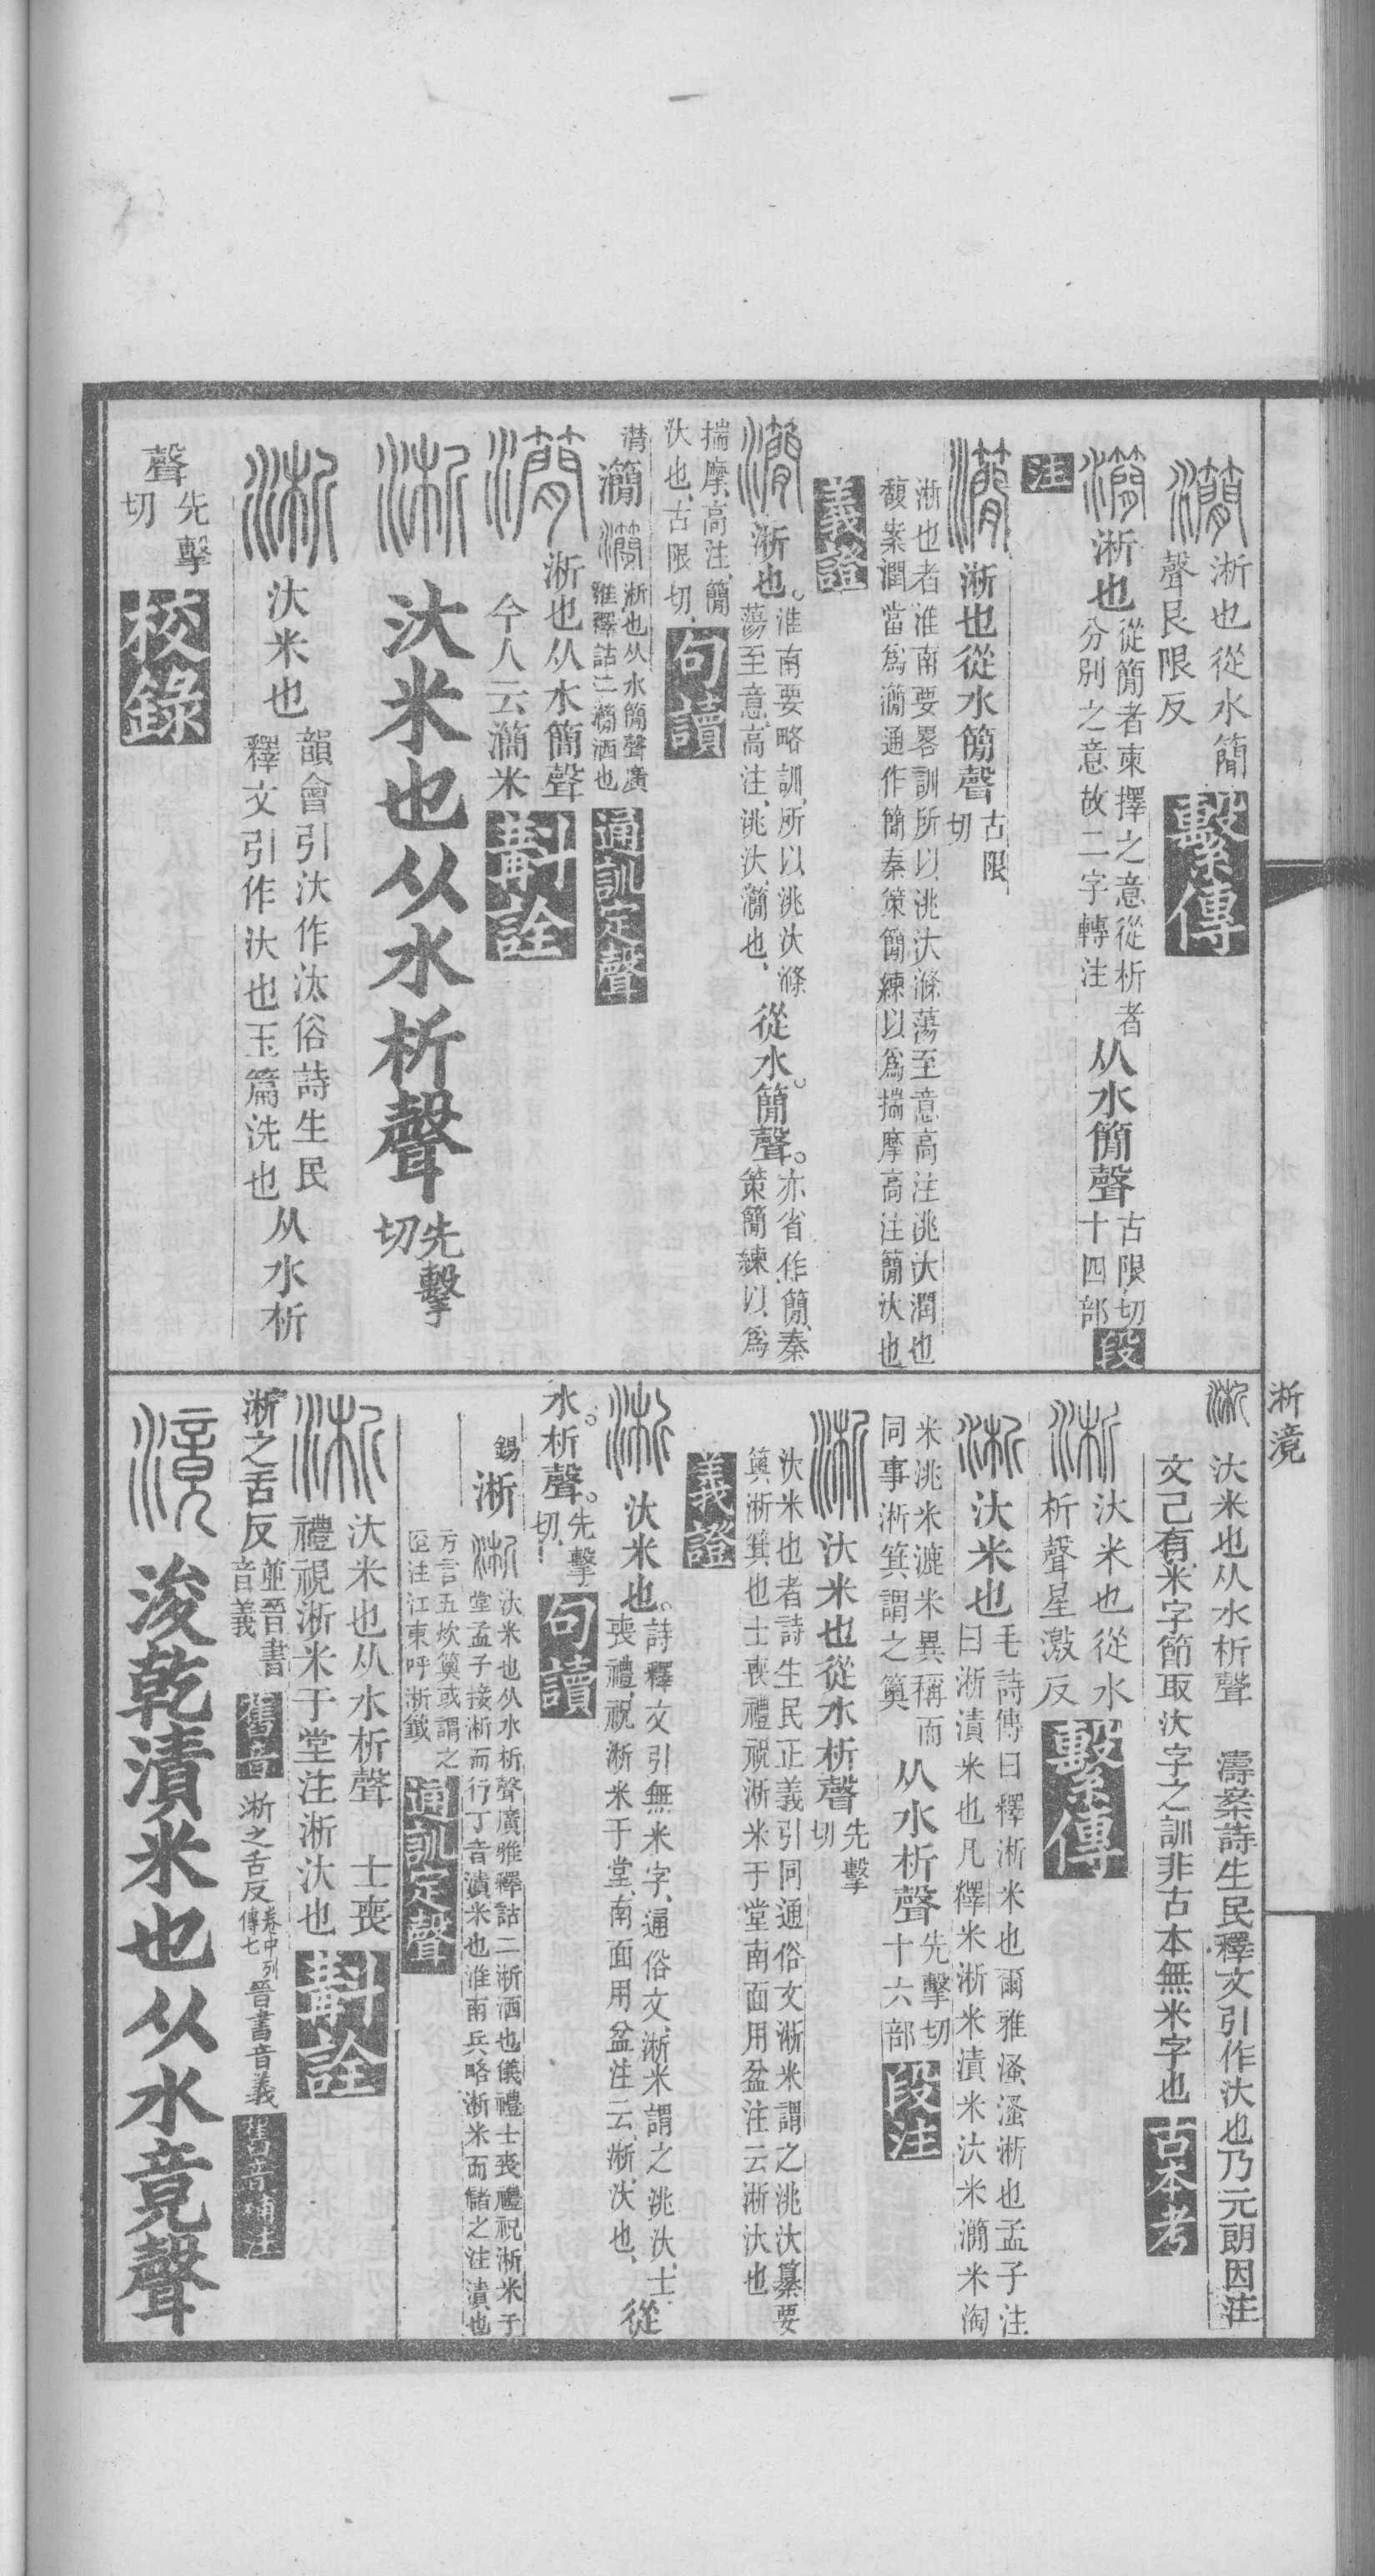 淅也從水簡
聲艮限反
繫傳
淅也從簡者柬擇之意從析者
分別之意故二字轉注
从水簡聲
古限切
十四部
段
注
淅也從水簡聲
古限
切
淅也者淮南要畧訓所以洮汏滌蕩至意高注洮汏潤也
馥案潤當爲灡通作簡秦策簡練以爲揣摩高注簡汏也
義證
淅也。
淮南要略訓、所以洮汏滌
蕩至意、高注、洮汏、灡也、
從水。簡聲。
亦省作簡、秦
策簡練以爲
揣摩、高注、簡
汏也、古限切、
句讀
灡
淅也从水簡聲廣
雅釋詁二灡洒也
通訓定聲
淅也从水簡聲
今人云灡米
斠詮
汏米也从水析聲
先擊
切
汏米也
韻會引汏作汰俗詩生民
釋文引作汏也玉篇洗也
从水析
聲
先擊
切
校錄
淅滰
汏米也从水析聲
濤案詩生民釋文引作汏也乃元朗因注
文已有米字節取汏字之訓非古本無米字也
古本考
汏米也從水
析聲星激反
繫傳
汏米也
毛詩傳曰釋淅米也爾雅溞溞淅也孟子注
曰淅漬米也凡釋米淅米漬米汏米灡米淘
米洮米漉米異稱而
同事淅箕謂之䉛
从水析聲
先擊切
十六部
段注
汏米也從水析聲
先擊
切
汏米也者詩生民正義引同通俗文淅米謂之洮汏纂要
䉛淅箕也士喪禮祝淅米于堂南面用盆注云淅汏也
義證
汏米也。
詩釋文引無米字、通俗文、淅米謂之洮汏、士
喪禮、祝淅米于堂、南面用盆注云、淅、汏也、
從
水。析聲。
先擊
切、
句讀
錫
淅
汏米也从水析聲廣雅釋詁二淅洒也儀禮士喪禮祝淅米于
堂孟子接淅而行丁音漬米也淮南兵略淅米而儲之注漬也
方言五炊䉛或謂之
匼注江東呼淅籤
通訓定聲
汏米也从水析聲 士喪
禮祝淅米于堂注淅汏也
斠詮
淅之舌反
並晉書
音義
舊音
淅之舌反
卷中列
傳七
晉書音義
舊音補注
浚乾漬米也从水竟聲